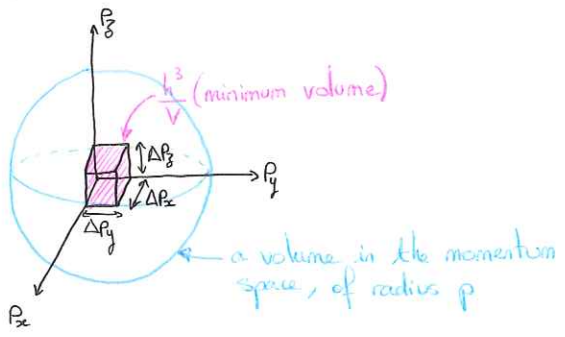 Pz
h³/V (minimum volume)
ΔPz
Py
ΔPx
ΔPy
a volume in the momentum
space, of radius p
Px